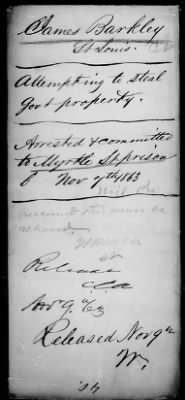 James Barkley
St Louis.
Attempting to steal
Govt property.
Arrested & committed
to Myrtle St prison
Nov 7th 1863
released
Release
Nov 9. 63
Released Nov 9th
W.